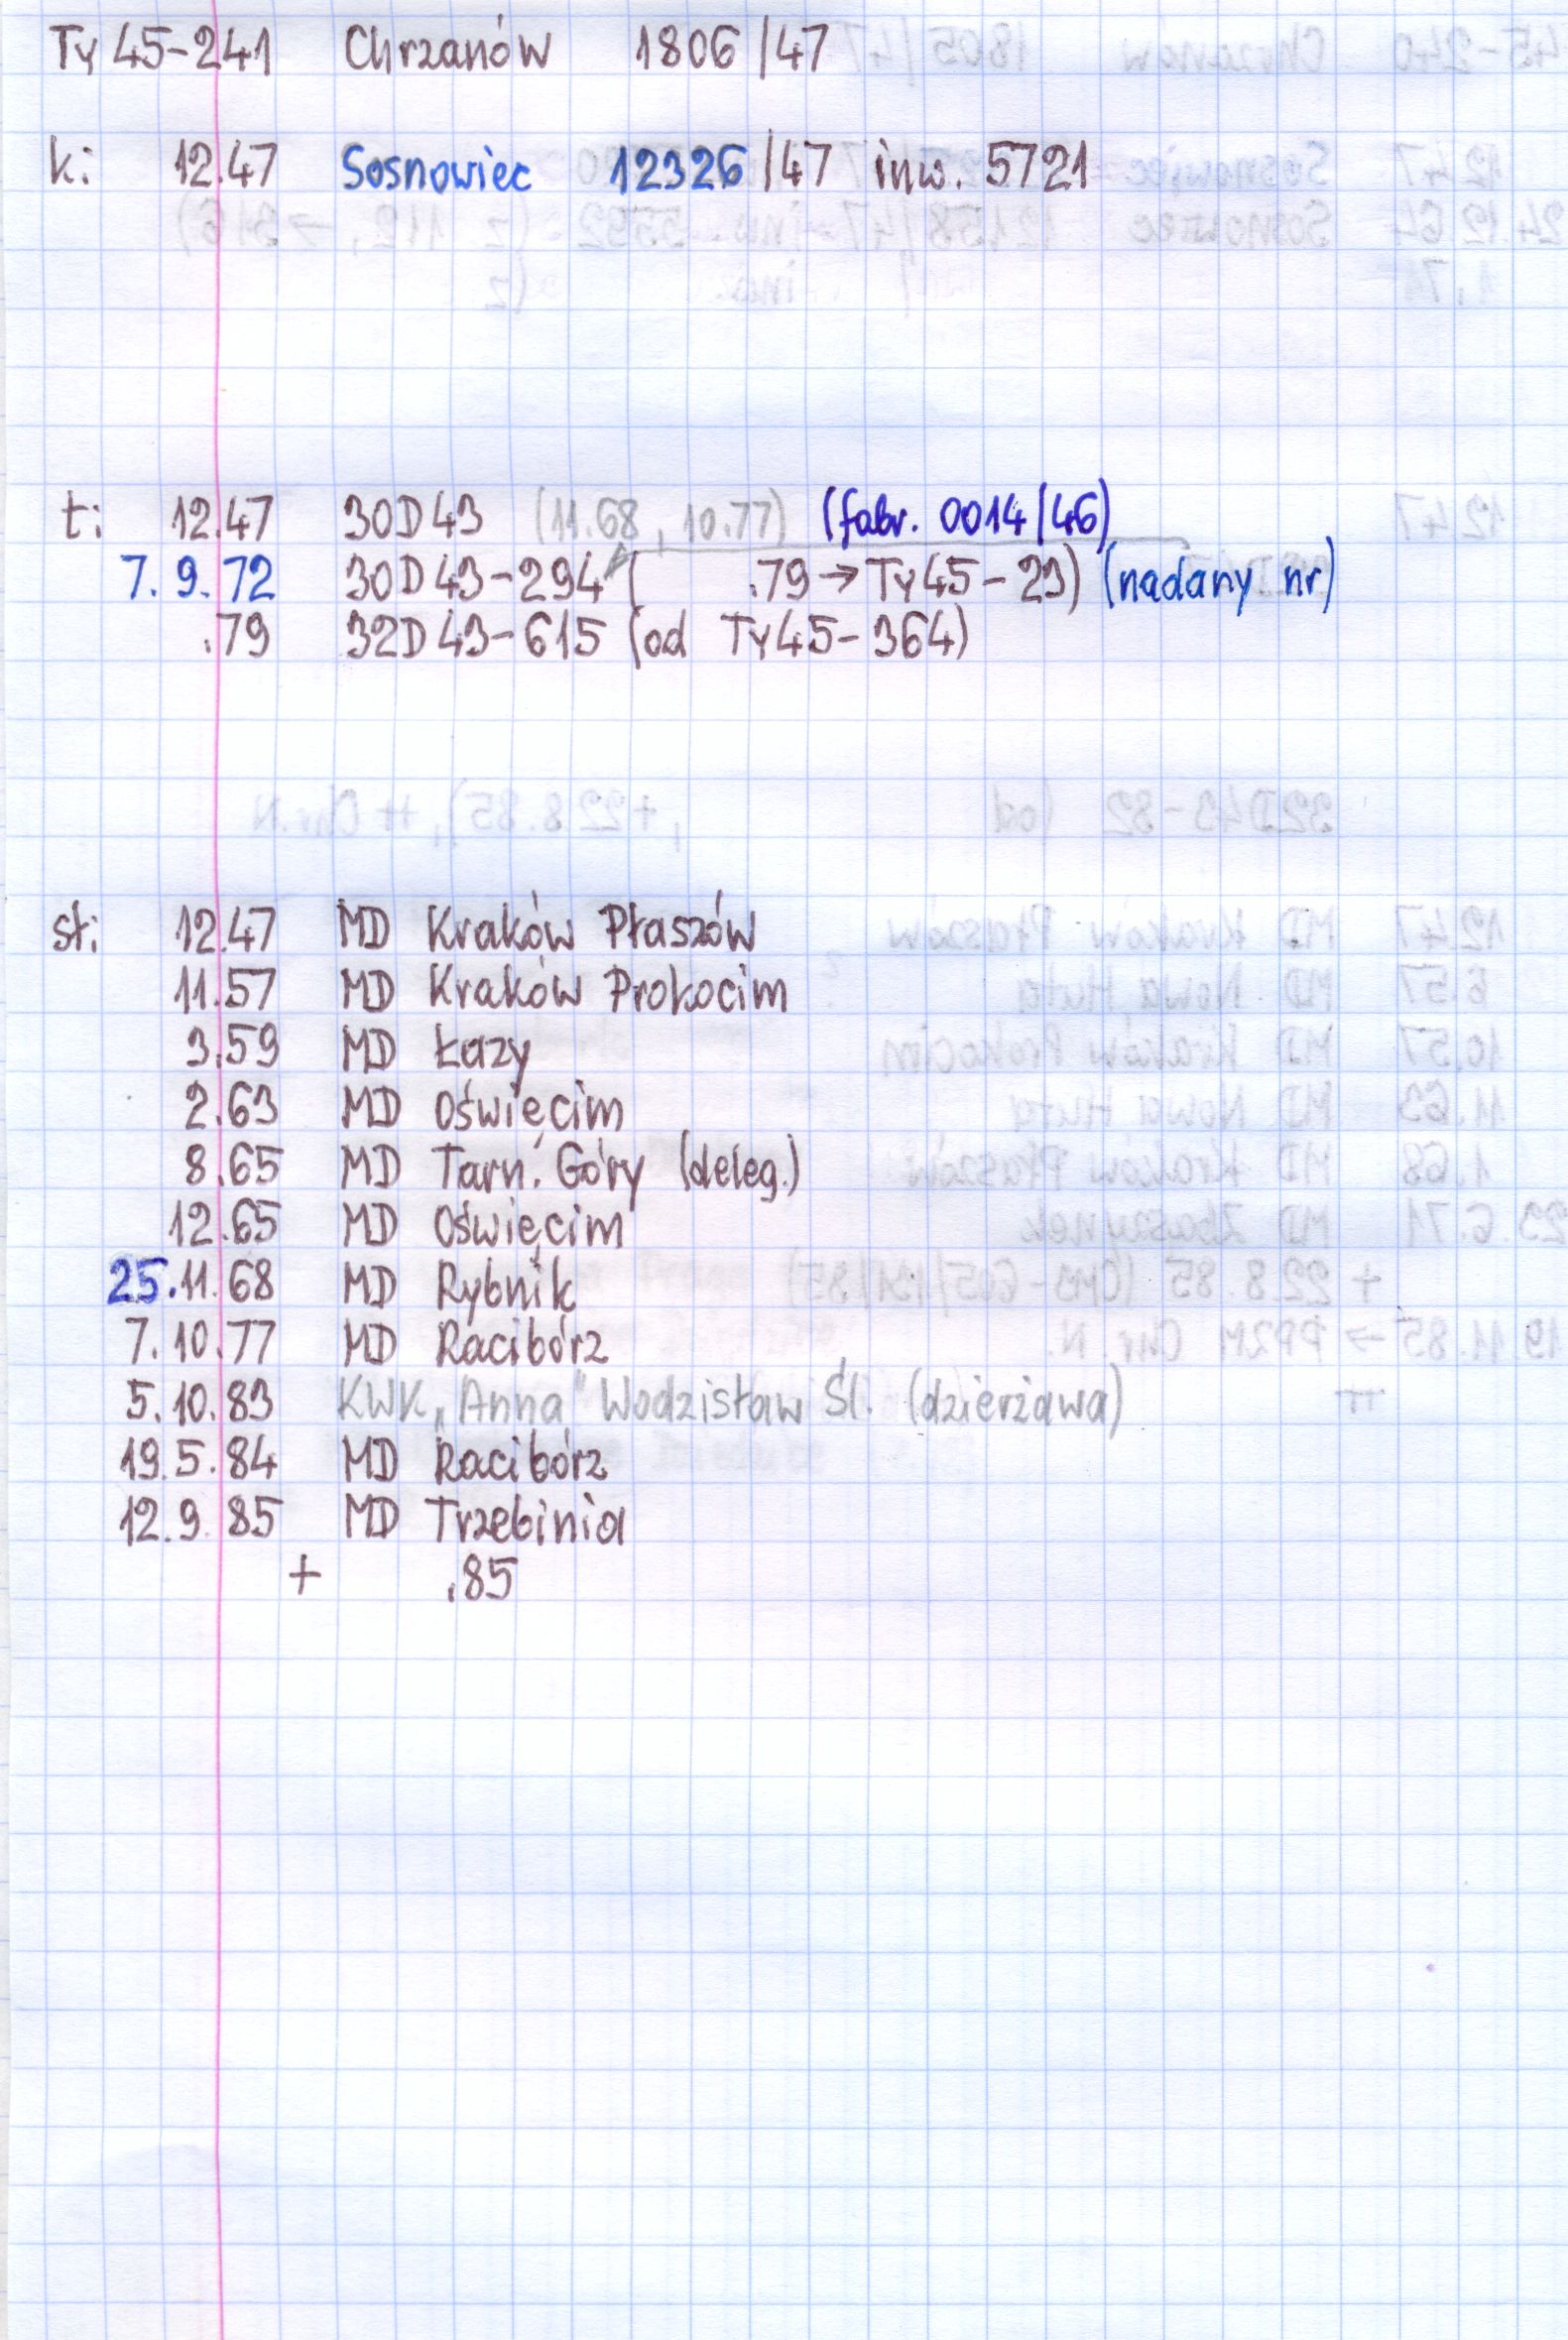 Ty45-241 Chrzanów 1806/47
k: 12.47 Sosnowiec 12326/47 inw. 5721
t: 12.47 30D43 (11.68, 10.77) (fabr. 0014/46)
7.9.72 30D43-294 ( .79→Ty45-29) (nadany nr)
.79 32D43-615 (od Ty45-364)
st: 12.47 MD Kraków Płaszów
11.57 MD Kraków Prokocim
3.59 MD Łazy
2.63 MD Oświęcim
8.65 MD Tarn. Góry (deleg.)
12.65 MD Oświęcim
25.11.68 MD Rybnik
7.10.77 MD Racibórz
5.10.83 KWK „Anna" Wodzisław Śl. (dzierżawa)
19.5.84 MD Racibórz
12.9.85 MD Trzebinia
+ .85